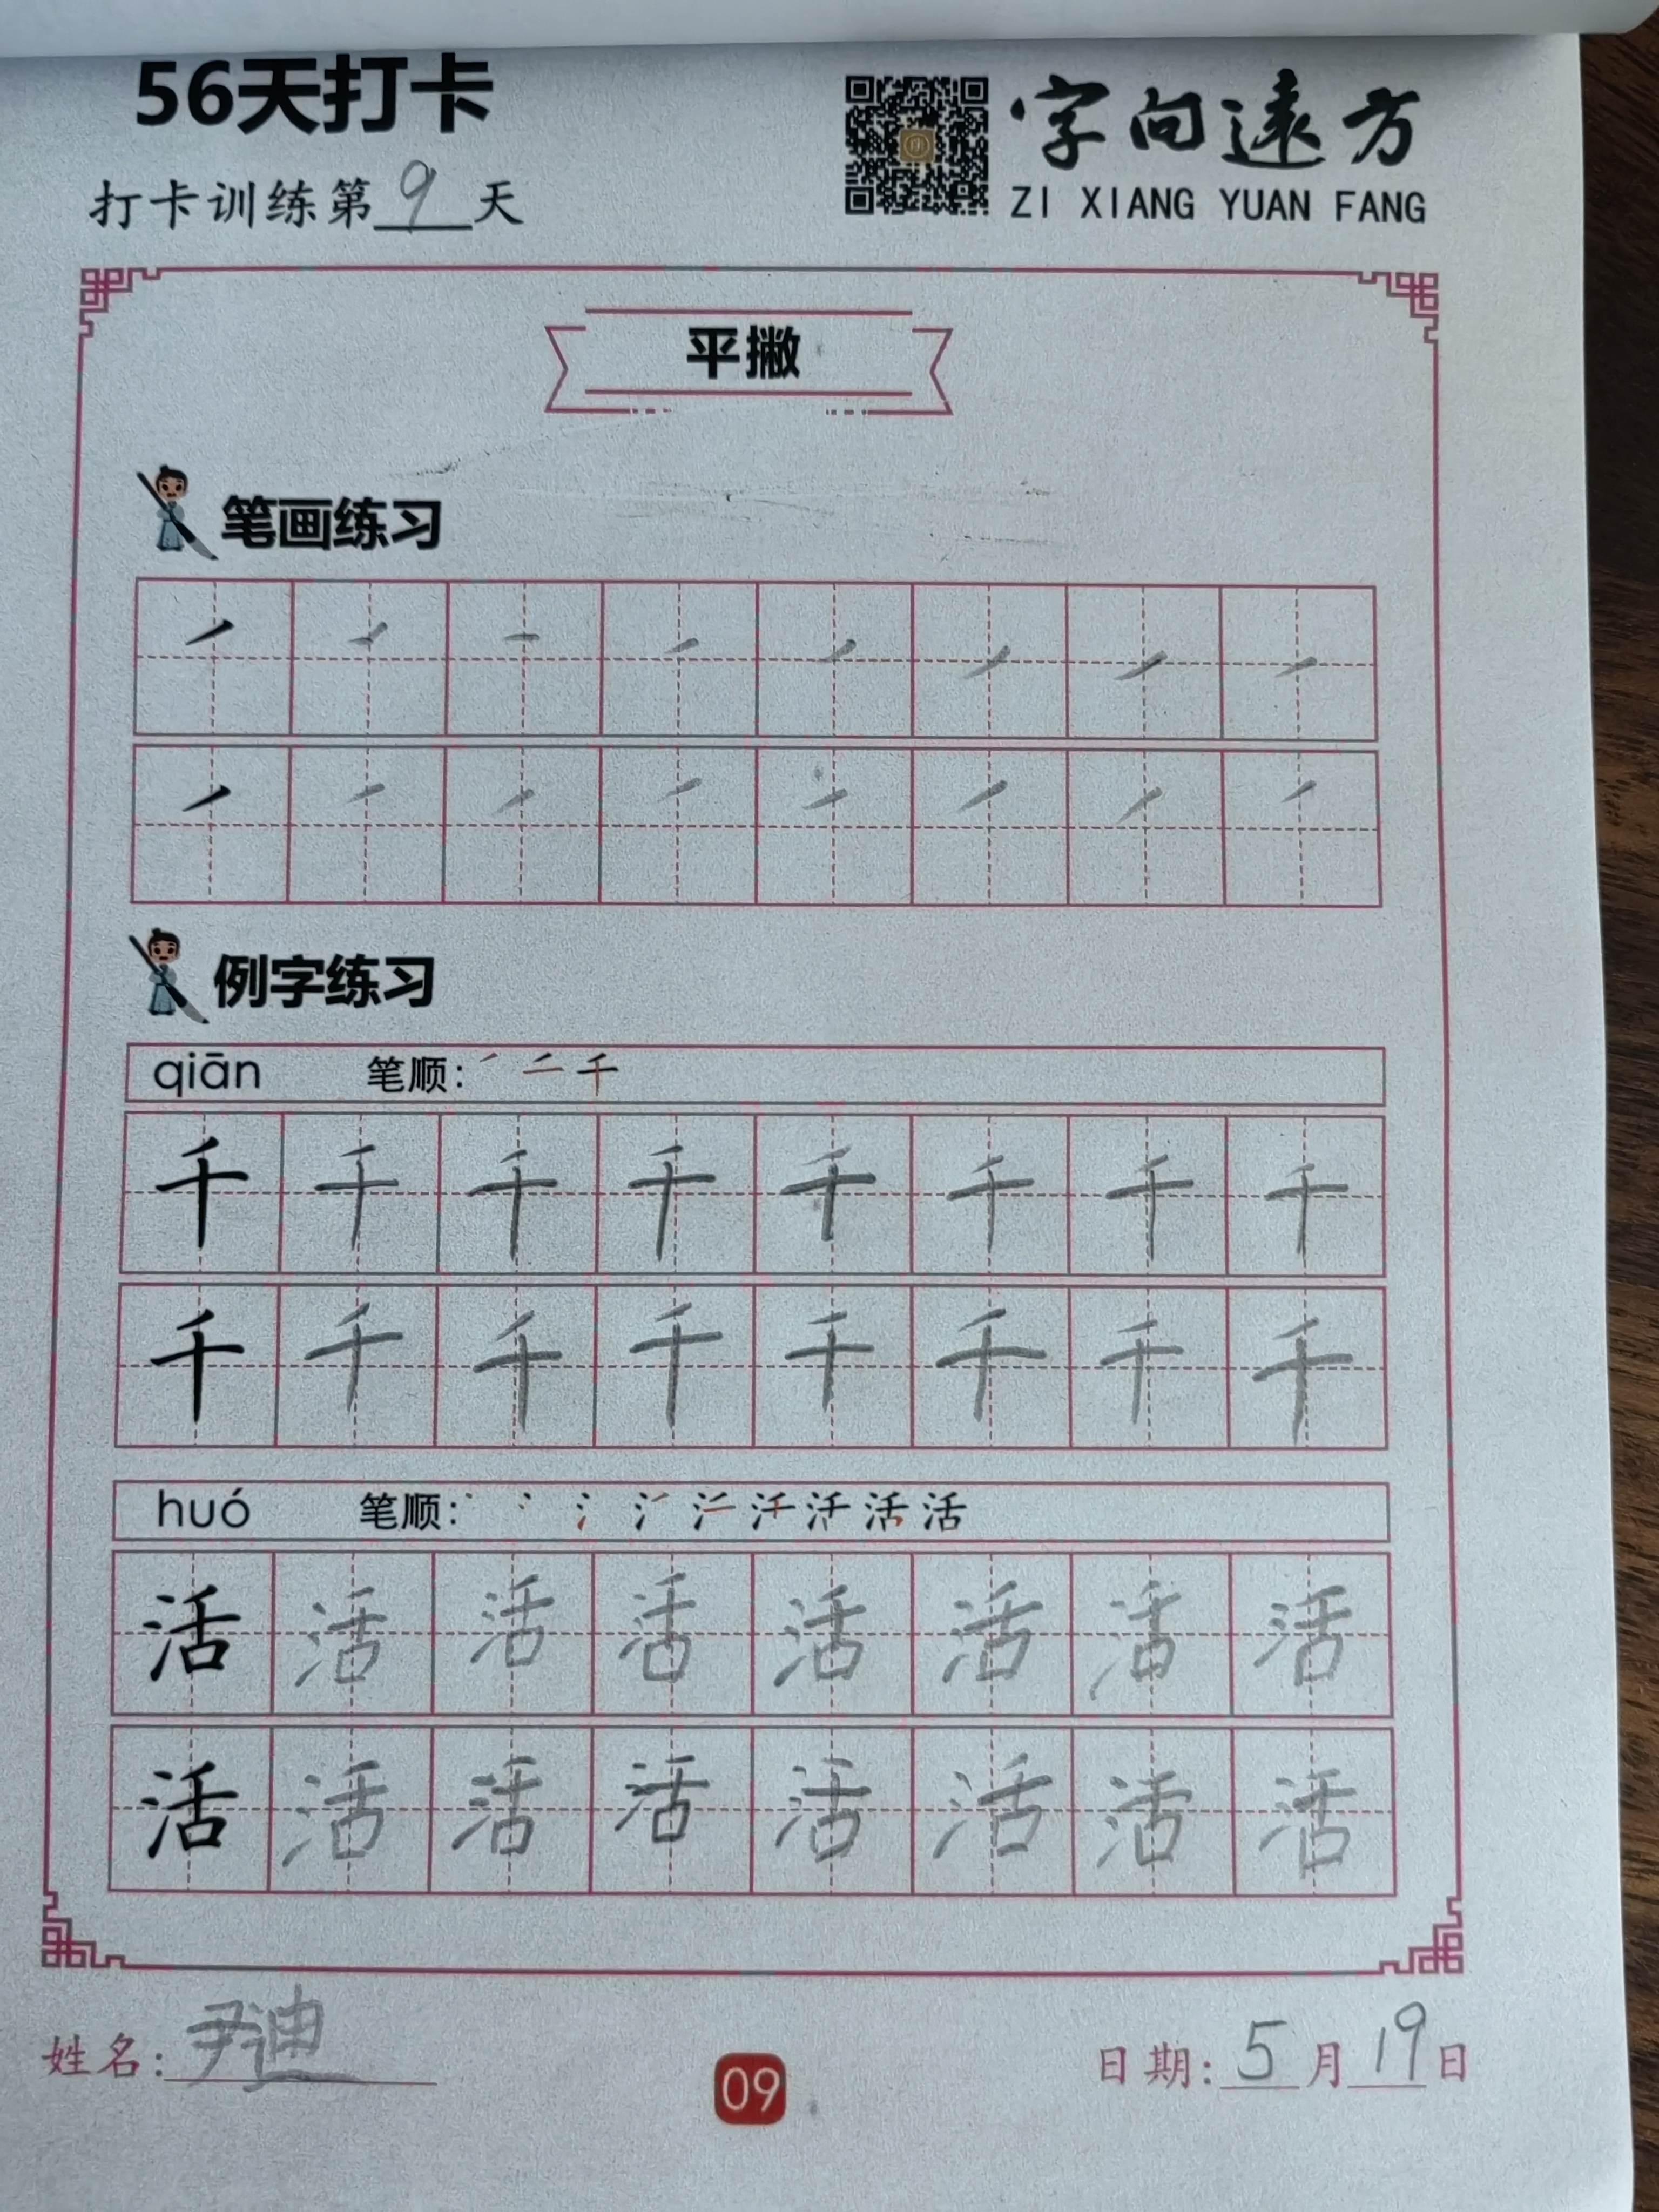 56天打卡
打卡训练第9天
字向远方
ZI XIANG YUAN FANG
平撇
笔画练习
㇒ ㇒ ㇒ ㇒ ㇒ ㇒ ㇒ ㇒
㇒ ㇒ ㇒ ㇒ ㇒ ㇒ ㇒ ㇒
例字练习
qiān 笔顺: ㇒ 二 千
千 千 千 千 千 千 千 千
千 千 千 千 千 千 千 千
huó 笔顺: 活
活 活 活 活 活 活 活 活
活 活 活 活 活 活 活 活
姓名: 尹迪
09
日期: 5月19日